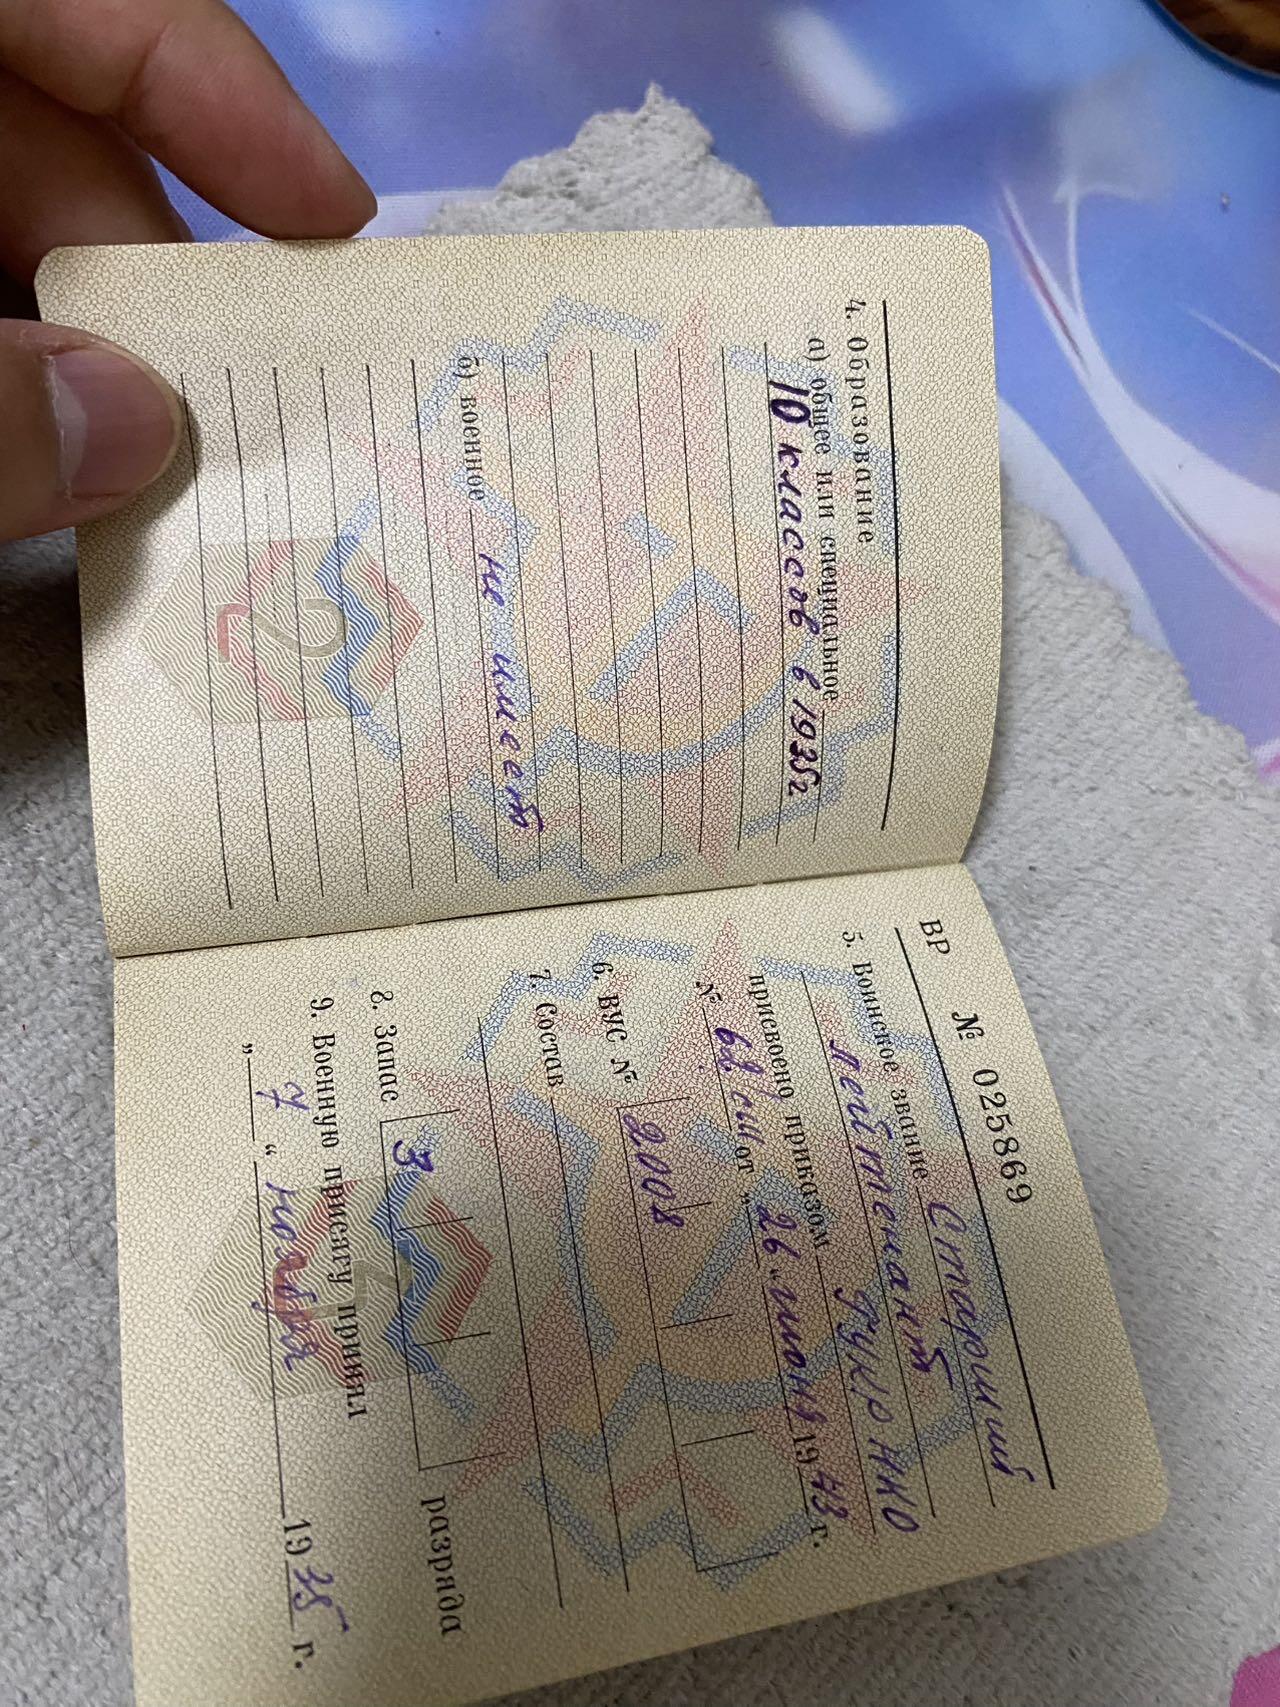 4. Образование
а) общее или специальное
10 классов в 1935г
б) военное не имеет
2
ВР № 025869
5. Воинское звание Старший
лейтенант
присвоено приказом ГУК НКО
№ от „26“ июня 1943 г.
6. ВУС № 2008
7. Состав
8. Запас 3 разряда
9. Военную присягу принял
„7“ ноября 1935 г.